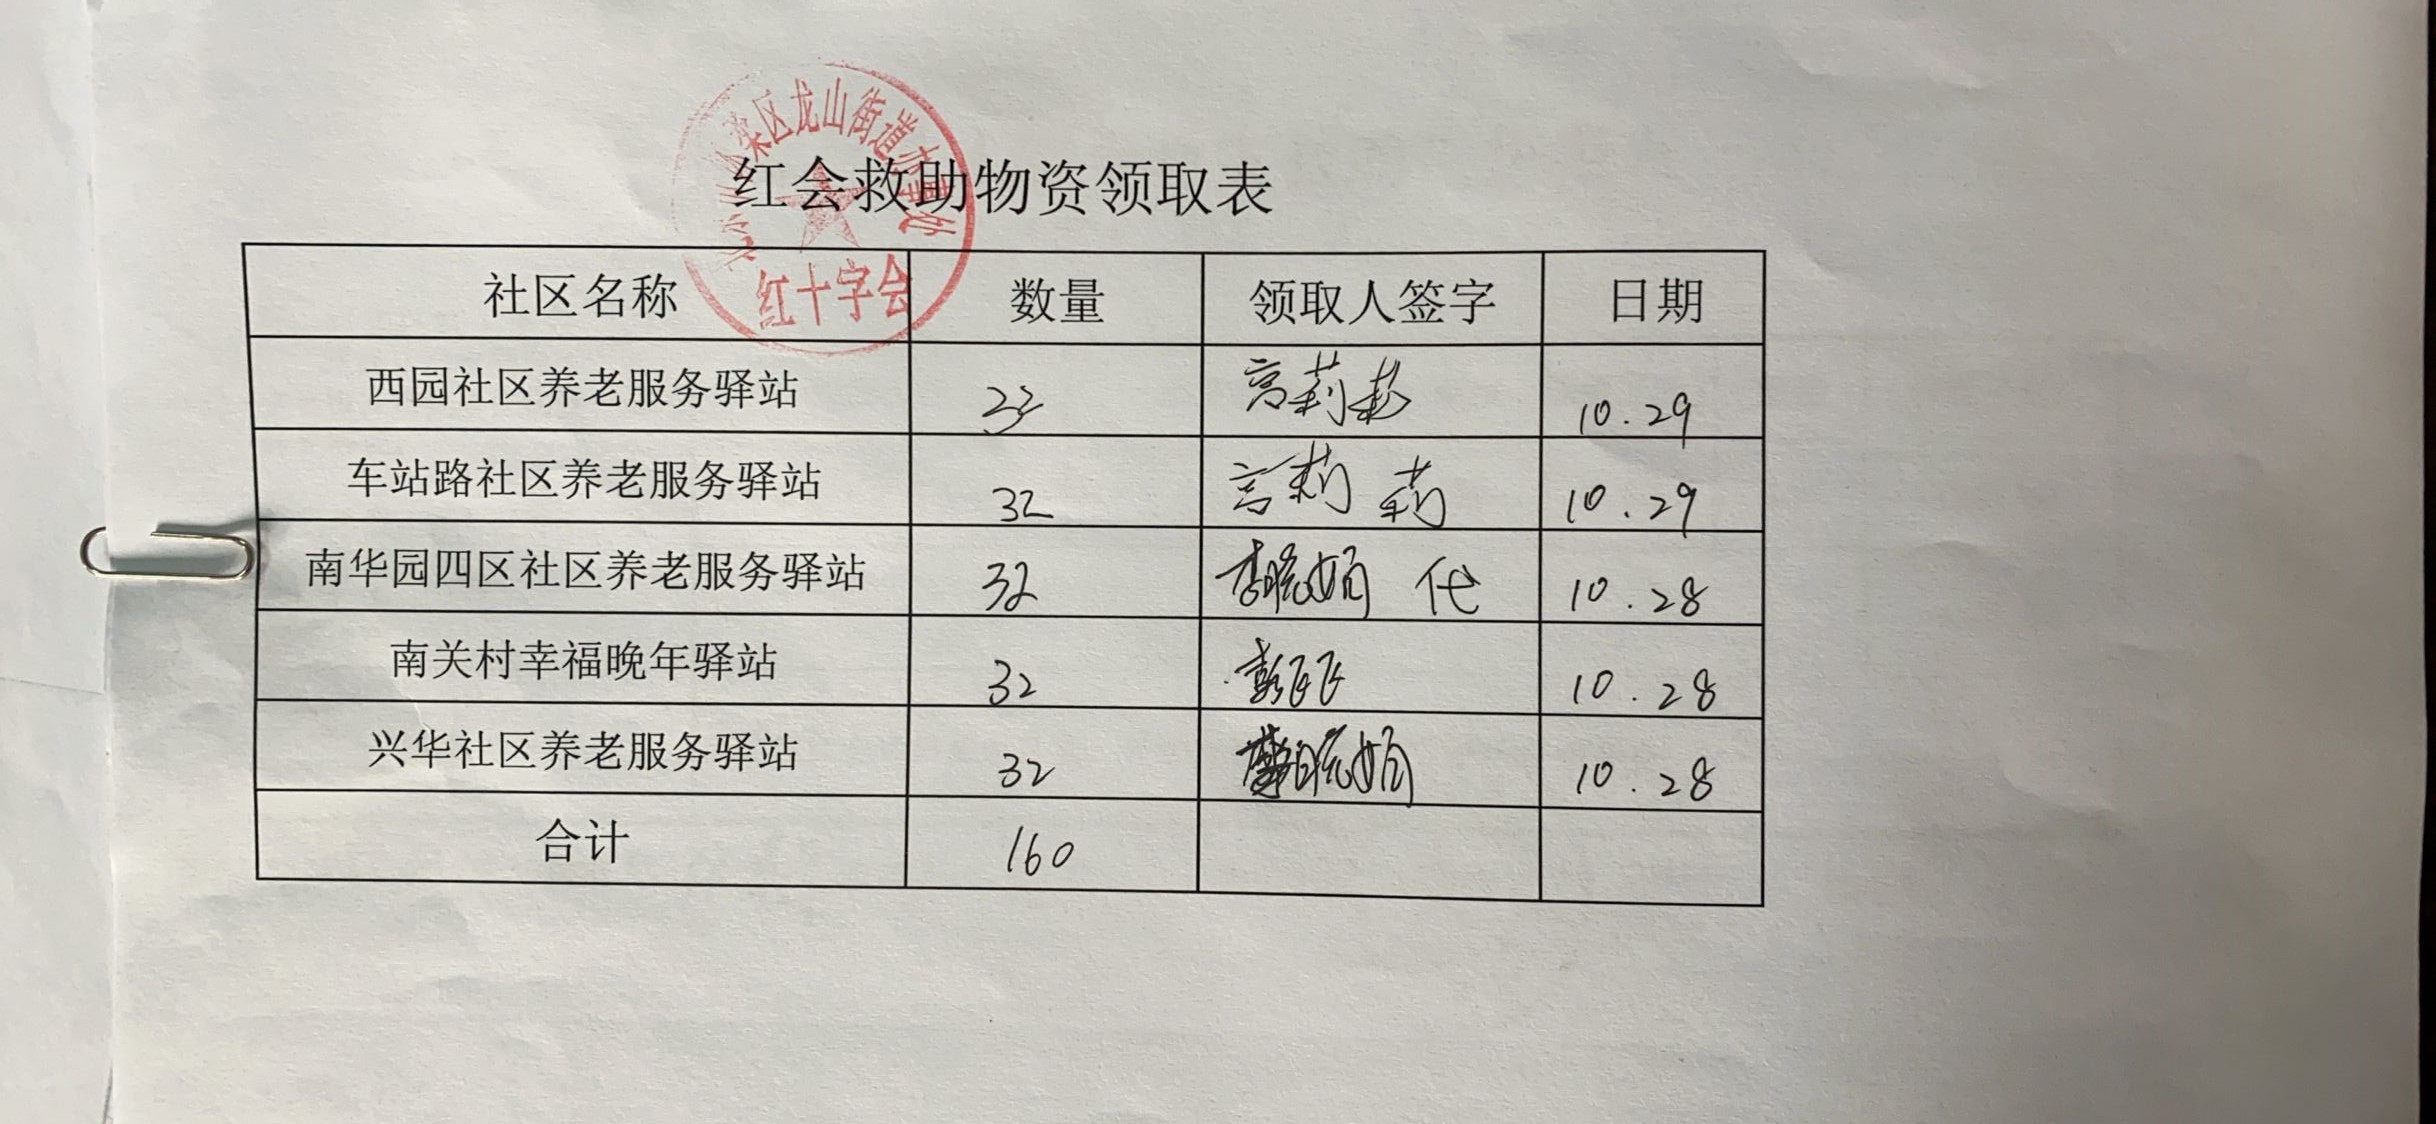 梁区龙山街道办事处
红十字会
红会救助物资领取表
社区名称 数量 领取人签字 日期
西园社区养老服务驿站 23 宫莉莉 10.29
车站路社区养老服务驿站 32 宫莉莉 10.29
南华园四区社区养老服务驿站 32 李晓娟 代 10.28
南关村幸福晚年驿站 32 10.28
兴华社区养老服务驿站 32 晓娟 10.28
合计 160